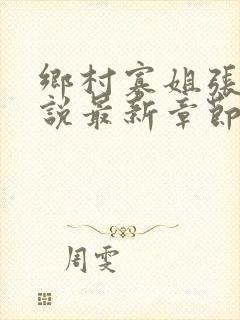 鄉村寡姐張
說最新章節
周雯